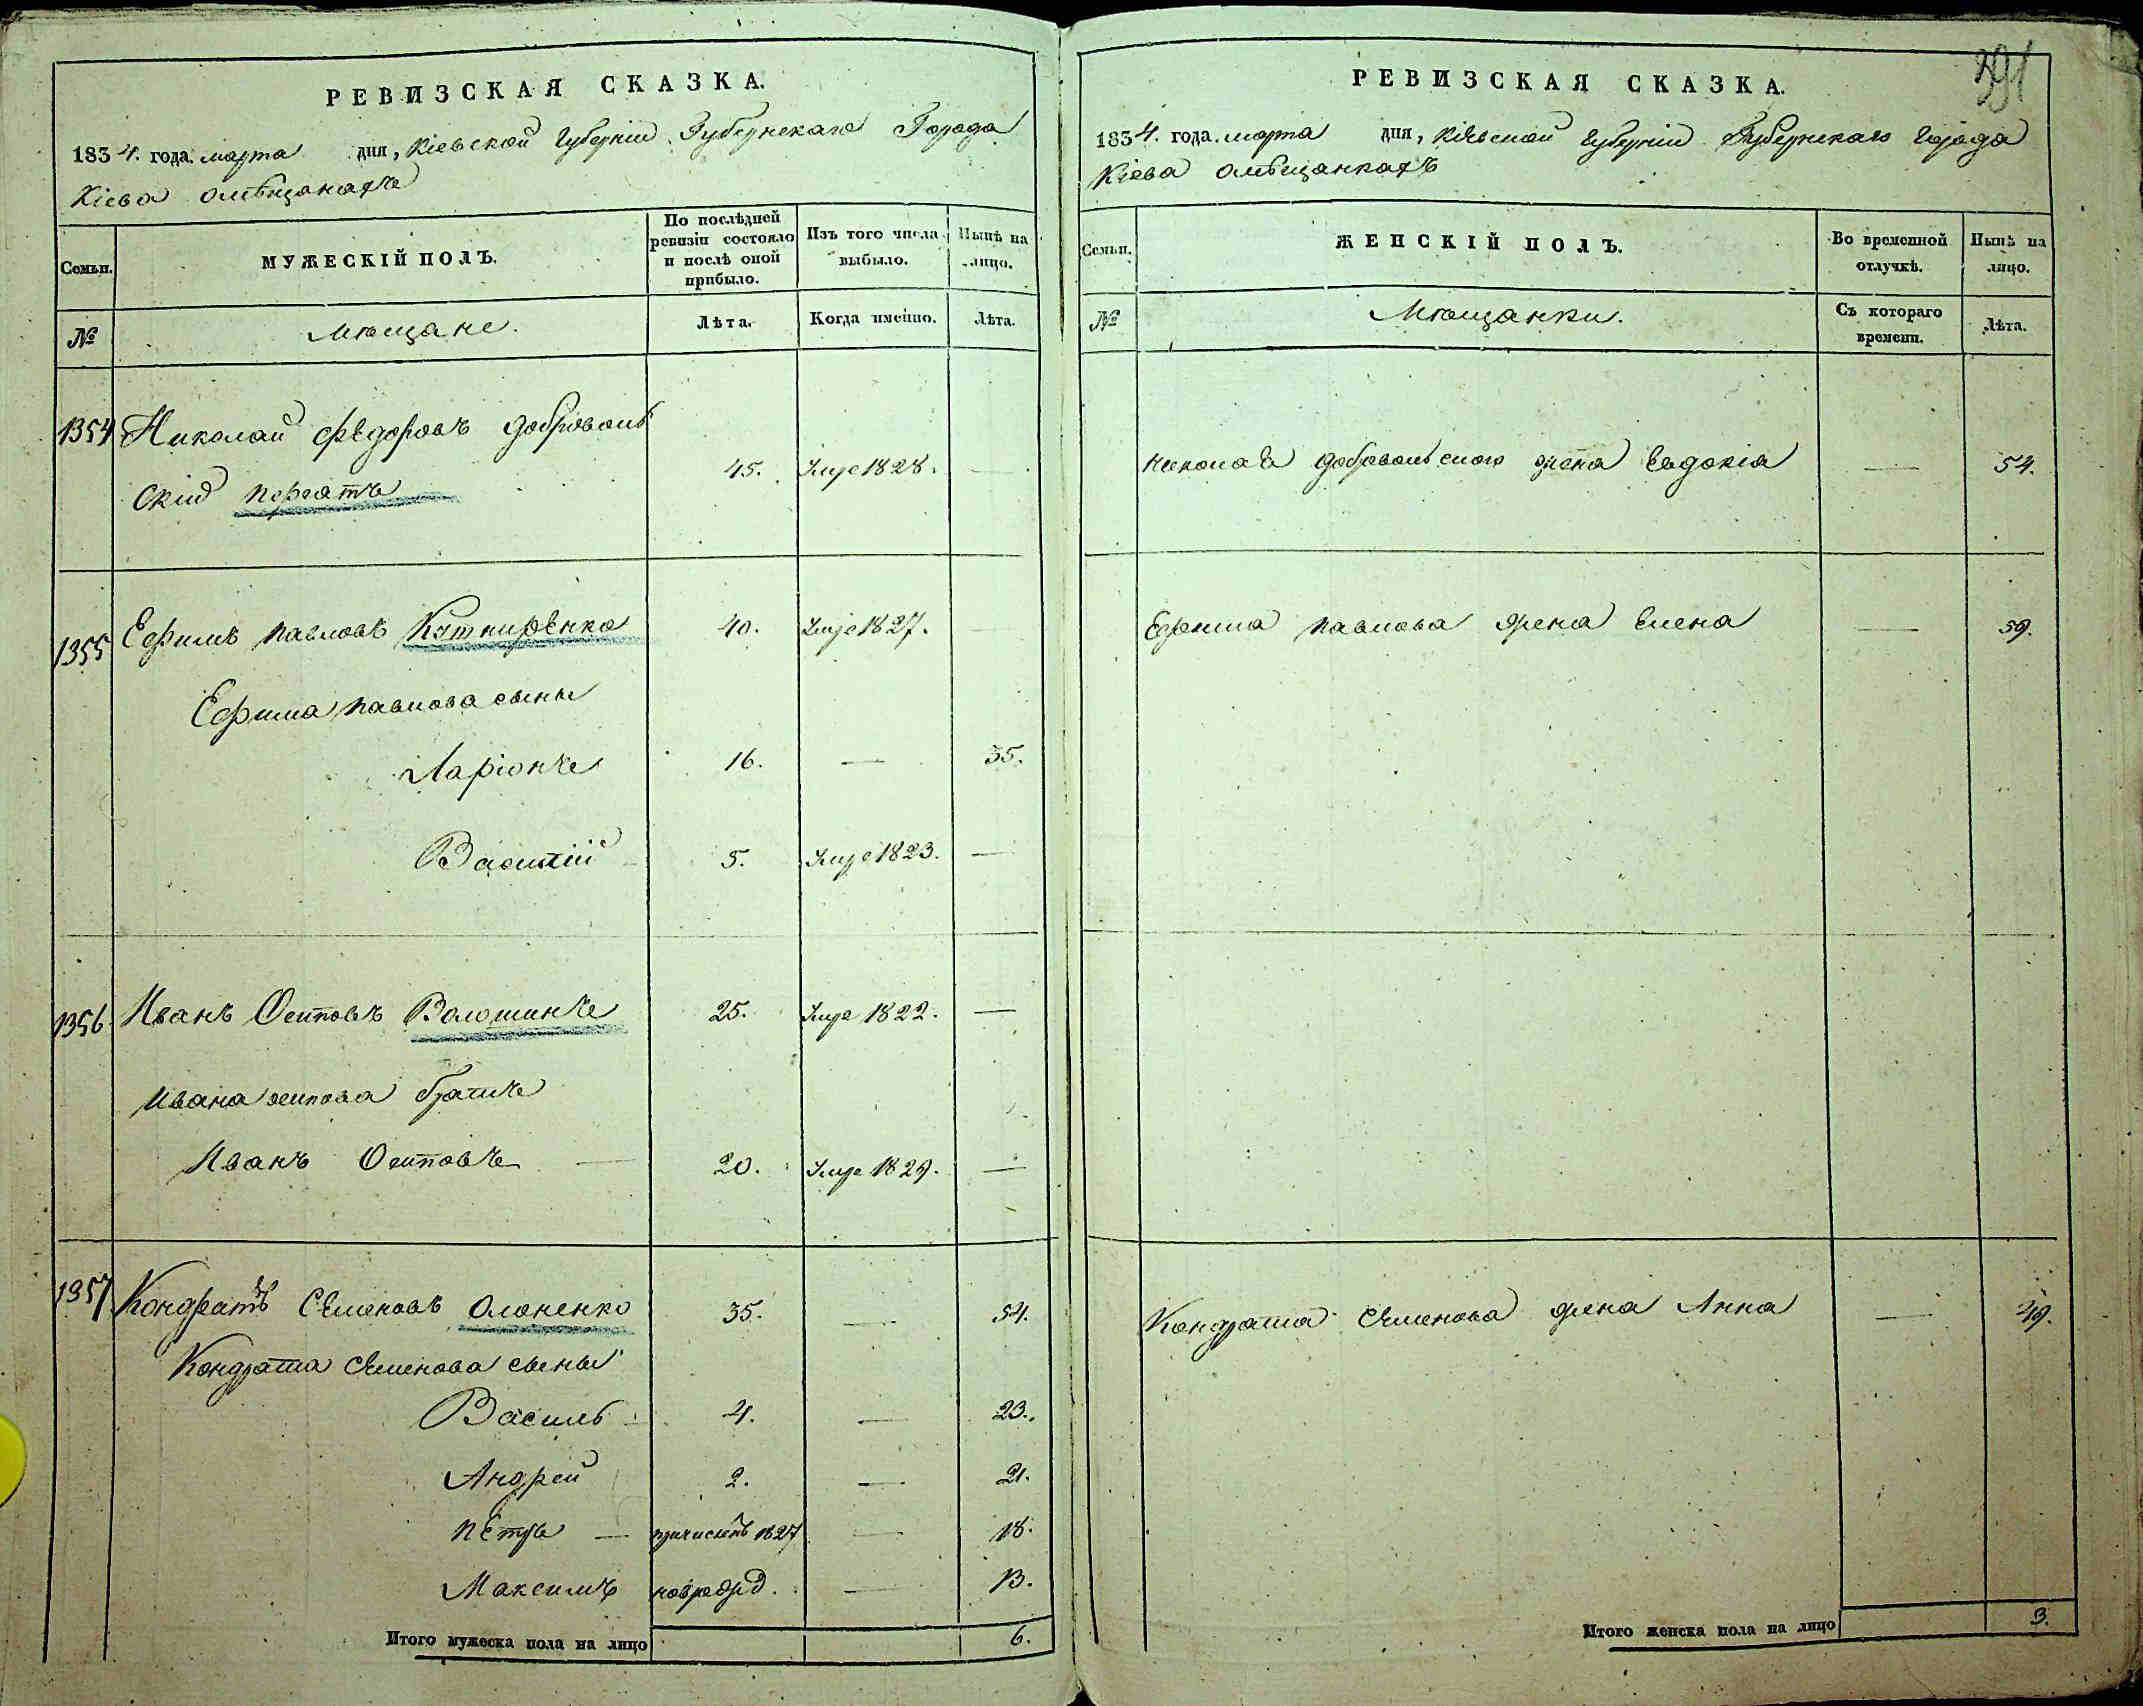 РЕВИЗСКАЯ СКАЗКА.
1834. года. марта дня, Кіевской Губерніи Губернскаго Города
Кіева омѣщанахъ
Семьи.
МУЖЕСКІЙ ПОЛЪ.
По послѣдней
ревизіи состояло
и послѣ оной
прибыло.
Изъ того числа
выбыло.
Нынѣ на
лицо.
№
Мѣщане.
Лѣта.
Когда именно.
Лѣта.
1354 Николай Федоровъ Доброволь
скій 45. Умре 1828. —
1355 Ефимъ Павловъ 40. Умре 1827.
Ефима Павлова сыны
Ларіонъ 16. — 35.
Василій 5. Умре 1823. —
1356 Иванъ Осиповъ Волошинъ 25. Умре 1822. —
Ивана Осипова братъ
Иванъ Осиповъ — 20. Умре 1829. —
1357 Кондратъ Семеновъ Олоненко 35. — 54.
Кондрата Семенова сыны
Василь 4. — 23.
Андрей 2. — 21.
Петръ — причисленъ 1827 — 18.
Максимъ новорожд. — 13.
Итого мужеска пола на лицо 6.
391
РЕВИЗСКАЯ СКАЗКА.
1834. года. марта дня, Кіевской Губерніи Губернскаго Города
Кіева омѣщанкахъ
Семьи.
ЖЕНСКІЙ ПОЛЪ.
Во временной
отлучкѣ.
Нынѣ на
лицо.
№
Мѣщанки.
Съ котораго
времени.
Лѣта.
Николая Добровольского жена Евдокія — 54.
Ефима Павлова жена Елена — 59.
Кондрата Семенова жена Анна — 49.
Итого женска пола на лицо 3.